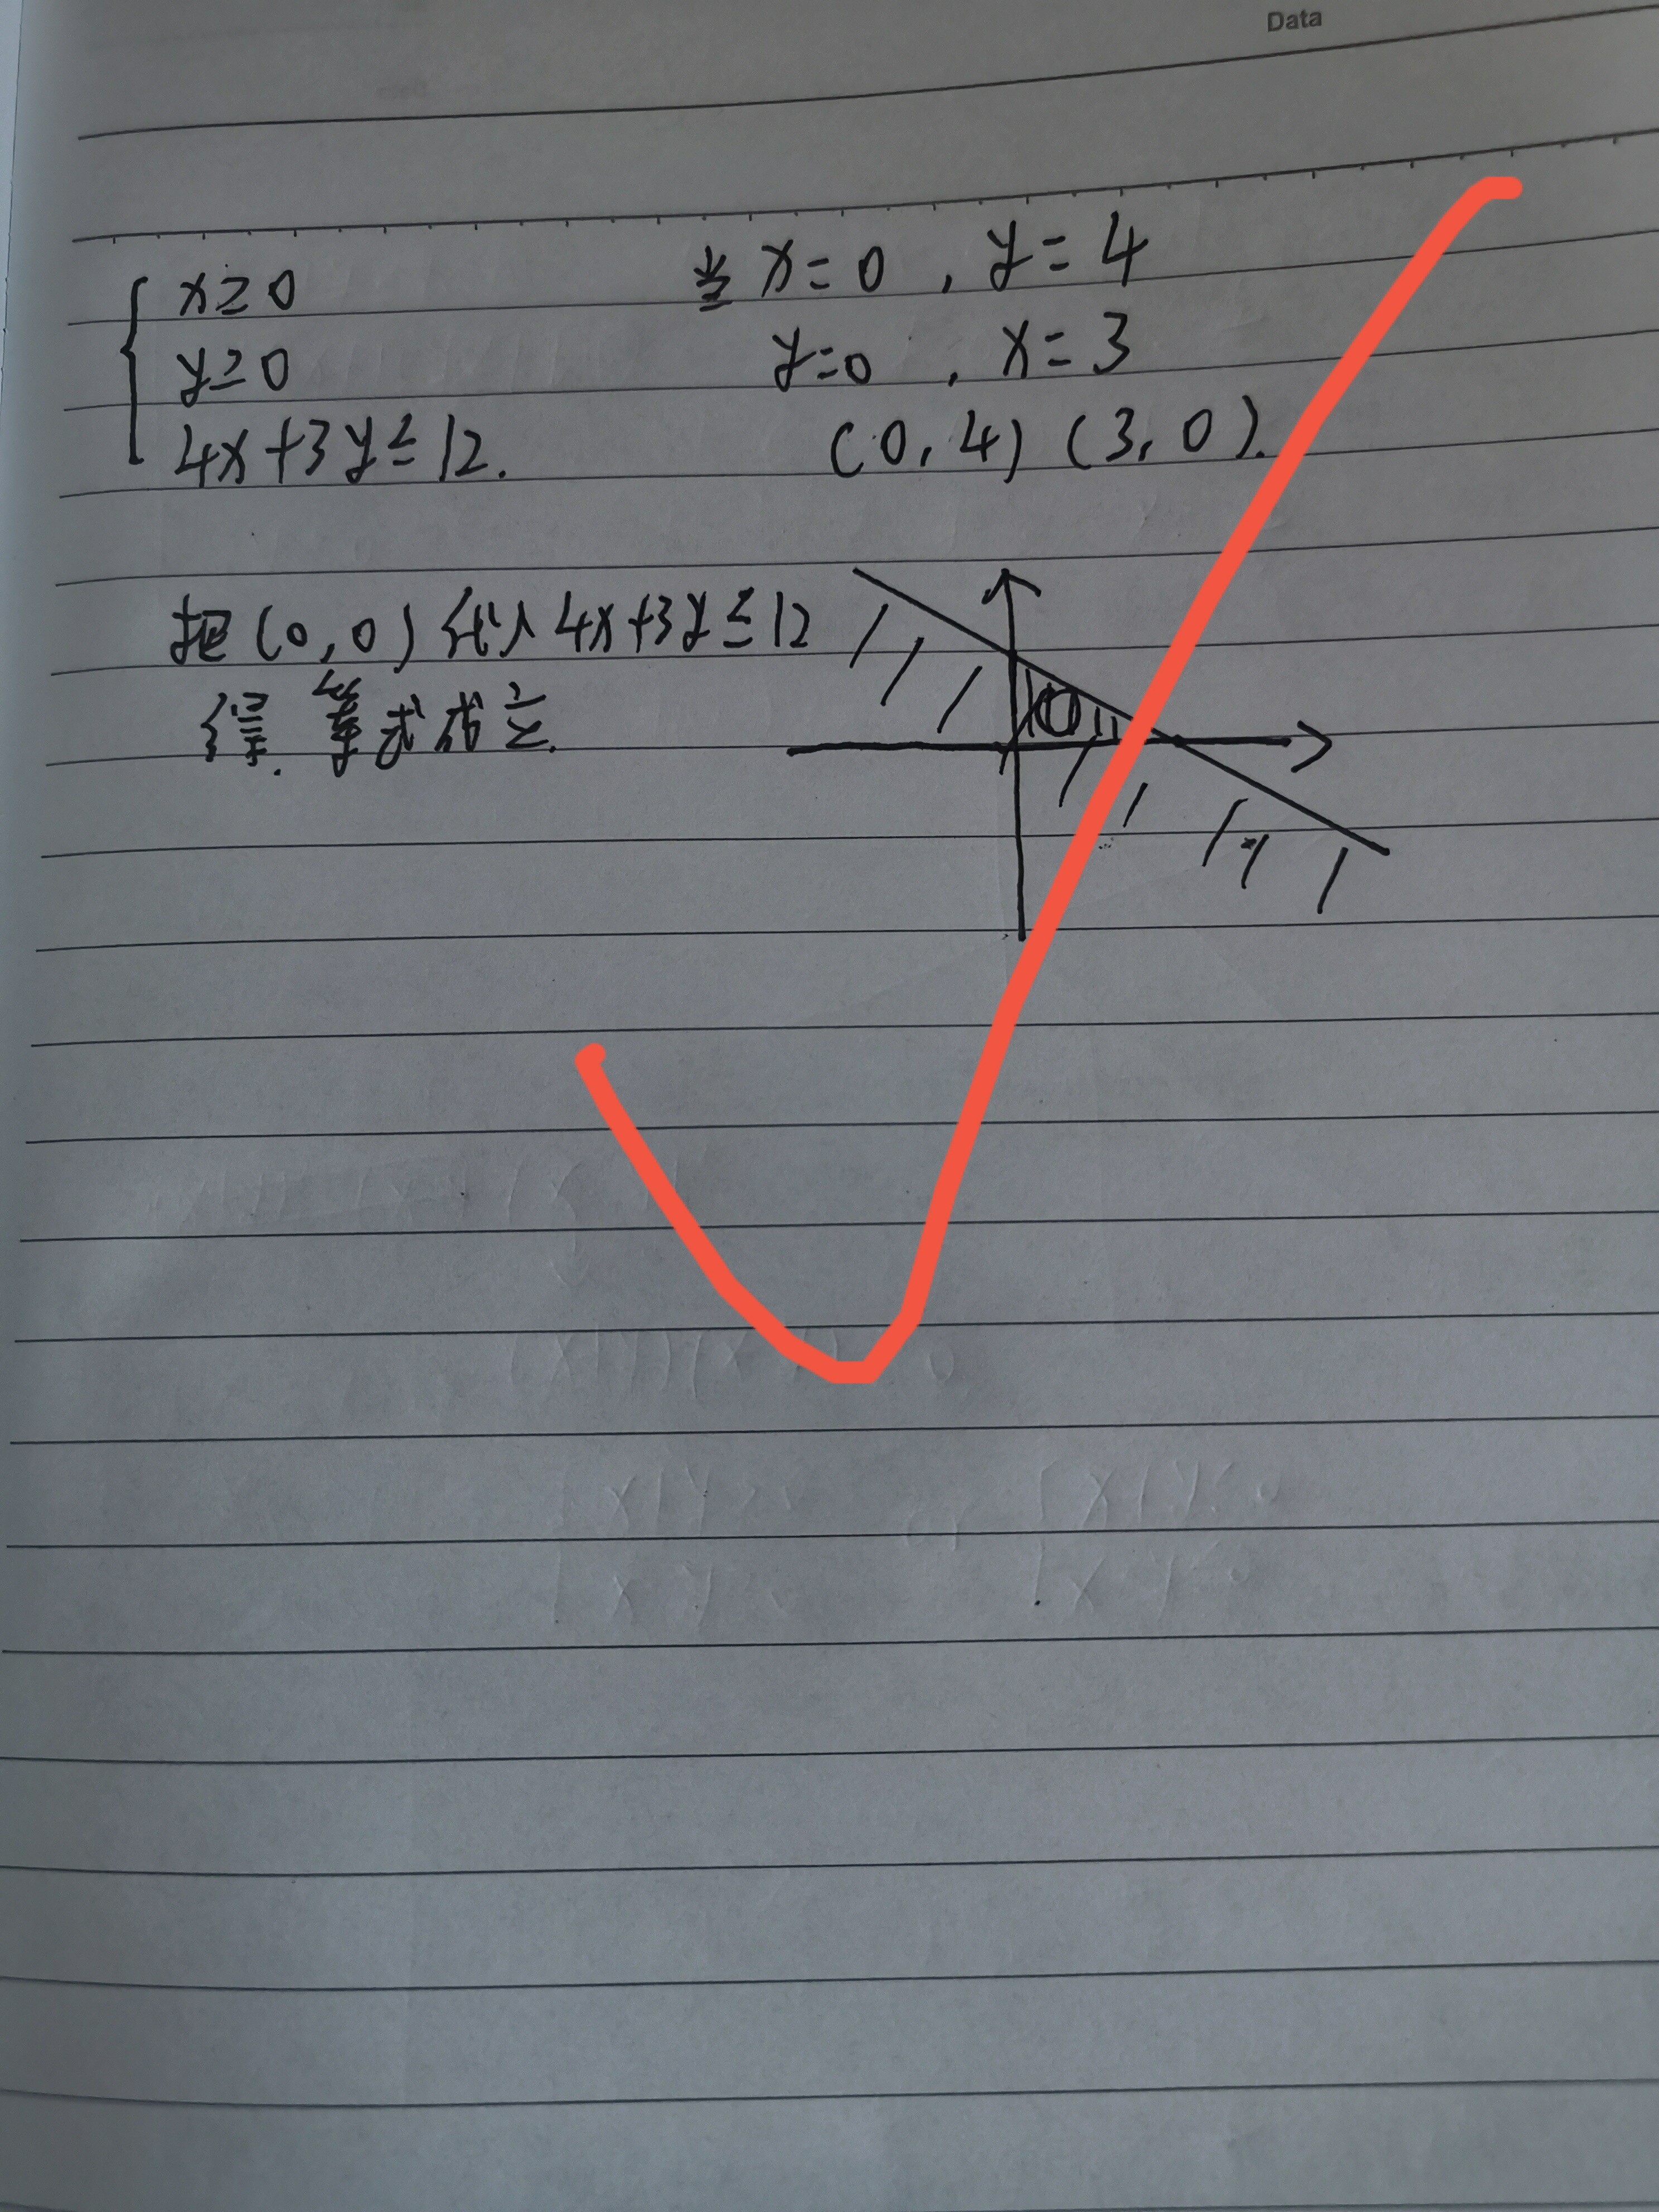 Data
x≥0
y≥0
4x+3y≤12.
当 x=0 , y=4
y=0 , x=3
(0,4) (3,0).
把(0,0)代入 4x+3y≤12
得. 等式成立.